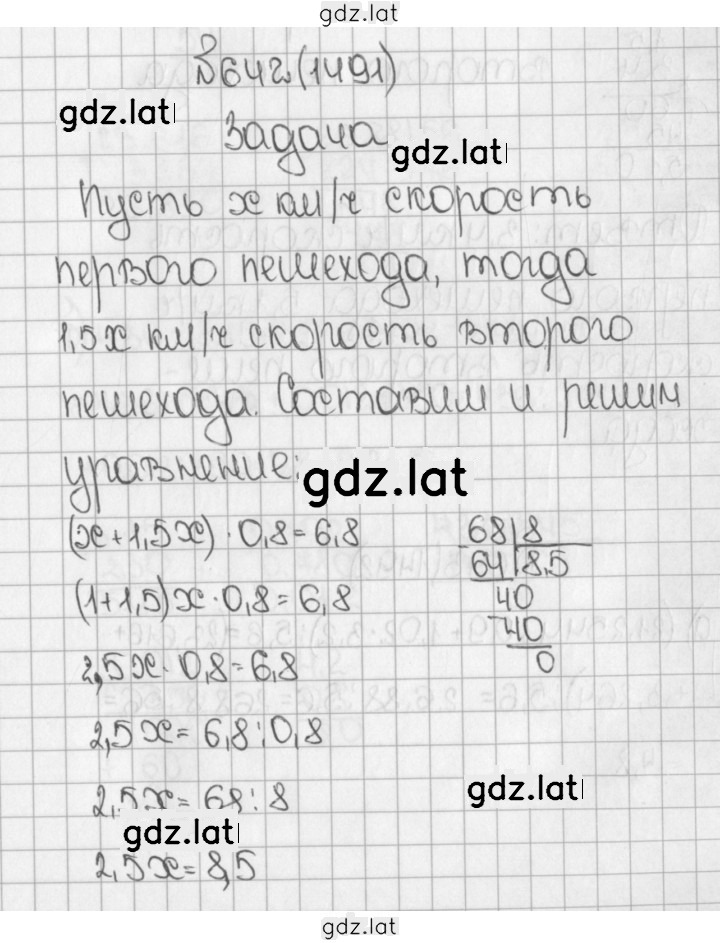 gdz.lat
№642(1491)
gdz.lat
Задача
gdz.lat
Пусть x км/ч скорость
первого пешехода, тогда
1,5x км/ч скорость второго
пешехода. Составим и решим
уравнение:
gdz.lat
(x+1,5x)·0,8=6,8
68|8
64|8,5
(1+1,5)x·0,8=6,8
40
40
0
2,5x·0,8=6,8
2,5x=6,8:0,8
gdz.lat
2,5x=68:8
gdz.lat
2,5x=8,5
gdz.lat